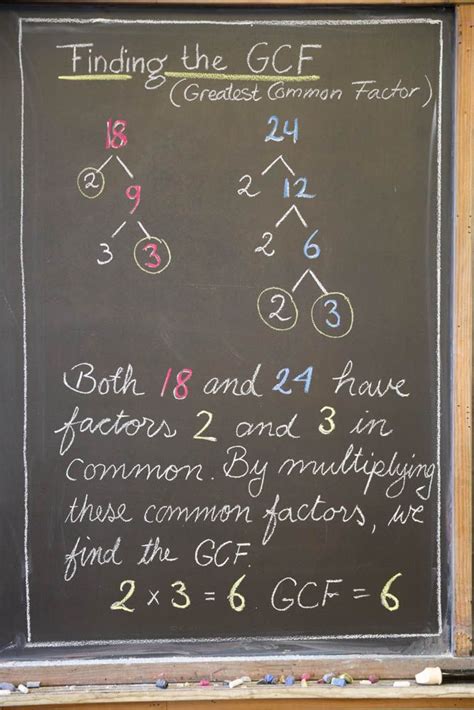 Finding the GCF
(Greatest Common Factor)
18 24
2 9 2 12
3 3 2 6
2 3
Both 18 and 24 have
factors 2 and 3 in
common. By multiplying
these common factors, we
find the GCF.
2 × 3 = 6 GCF = 6